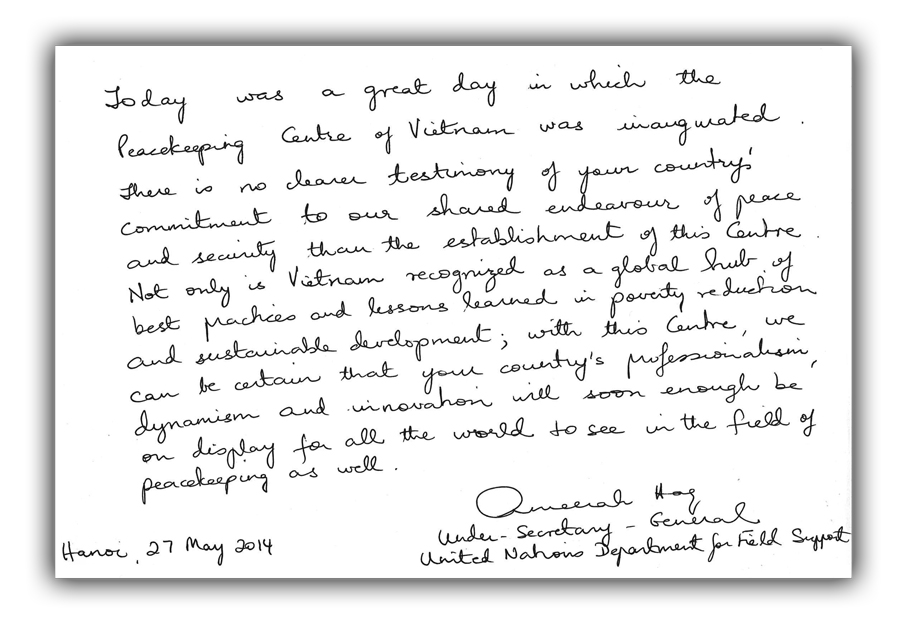 Today was a great day in which the
Peacekeeping Centre of Vietnam was inaugurated.
There is no clearer testimony of your country's
commitment to our shared endeavour of peace
and security than the establishment of this Centre.
Not only is Vietnam recognized as a global hub of
best practices and lessons learned in poverty reduction
and sustainable development; with this Centre, we
can be certain that your country's professionalism,
dynamism and innovation will soon enough be
on display for all the world to see in the field of
peacekeeping as well.
Ameerah Haq
Under-Secretary-General
United Nations Department for Field Support
Hanoi, 27 May 2014